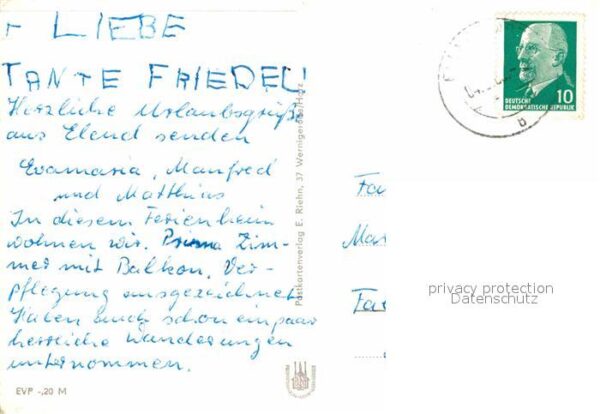 LIEBE
TANTE FRIEDEL!
Herzliche Urlaubsgrüße
aus Elend senden
Evamaria, Manfred
und Matthias
In diesem Ferienheim
wohnen wir. Prima Zim-
mer mit Balkon. Ver-
pflegung ausgezeichnet.
Haben auch schon ein paar
herrliche Wanderungen
unternommen.
EVP -,20 M
Postkartenverlag E. Riehn, 37 Wernigerode/Harz
DEUTSCHE
DEMOKRATISCHE REPUBLIK
10
b
Fa
Ma
Fa
privacy protection
Datenschutz